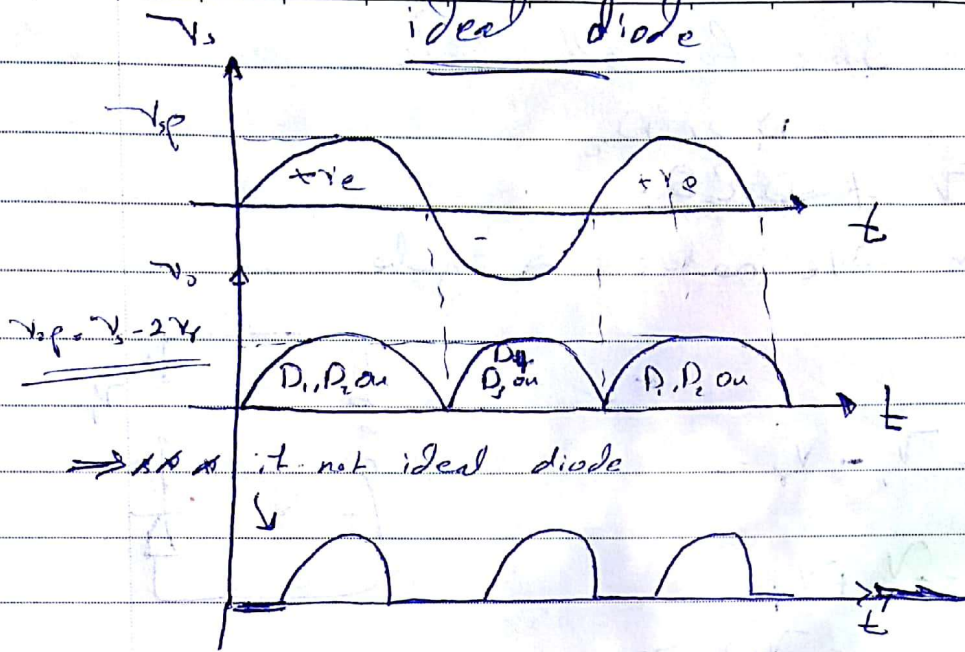 ideal diode
Vs
Vsp
+ve
+ve
-
t
Vo
Vop = Vs - 2Vγ
D1, D2 on
D4
D3 on
D1, D2 on
t
it not ideal diode
t